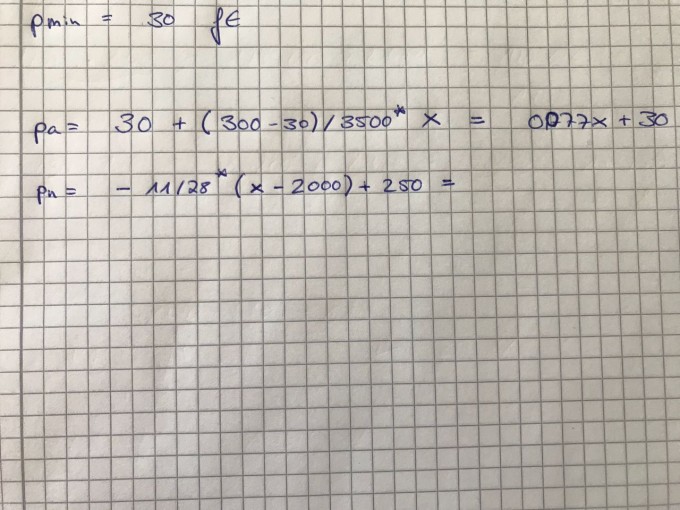 pmin = 30 f€
pa = 30 + (300 - 30) / 3500 * x = 0,077x + 30
pn = - 11/28 * (x - 2000) + 250 =